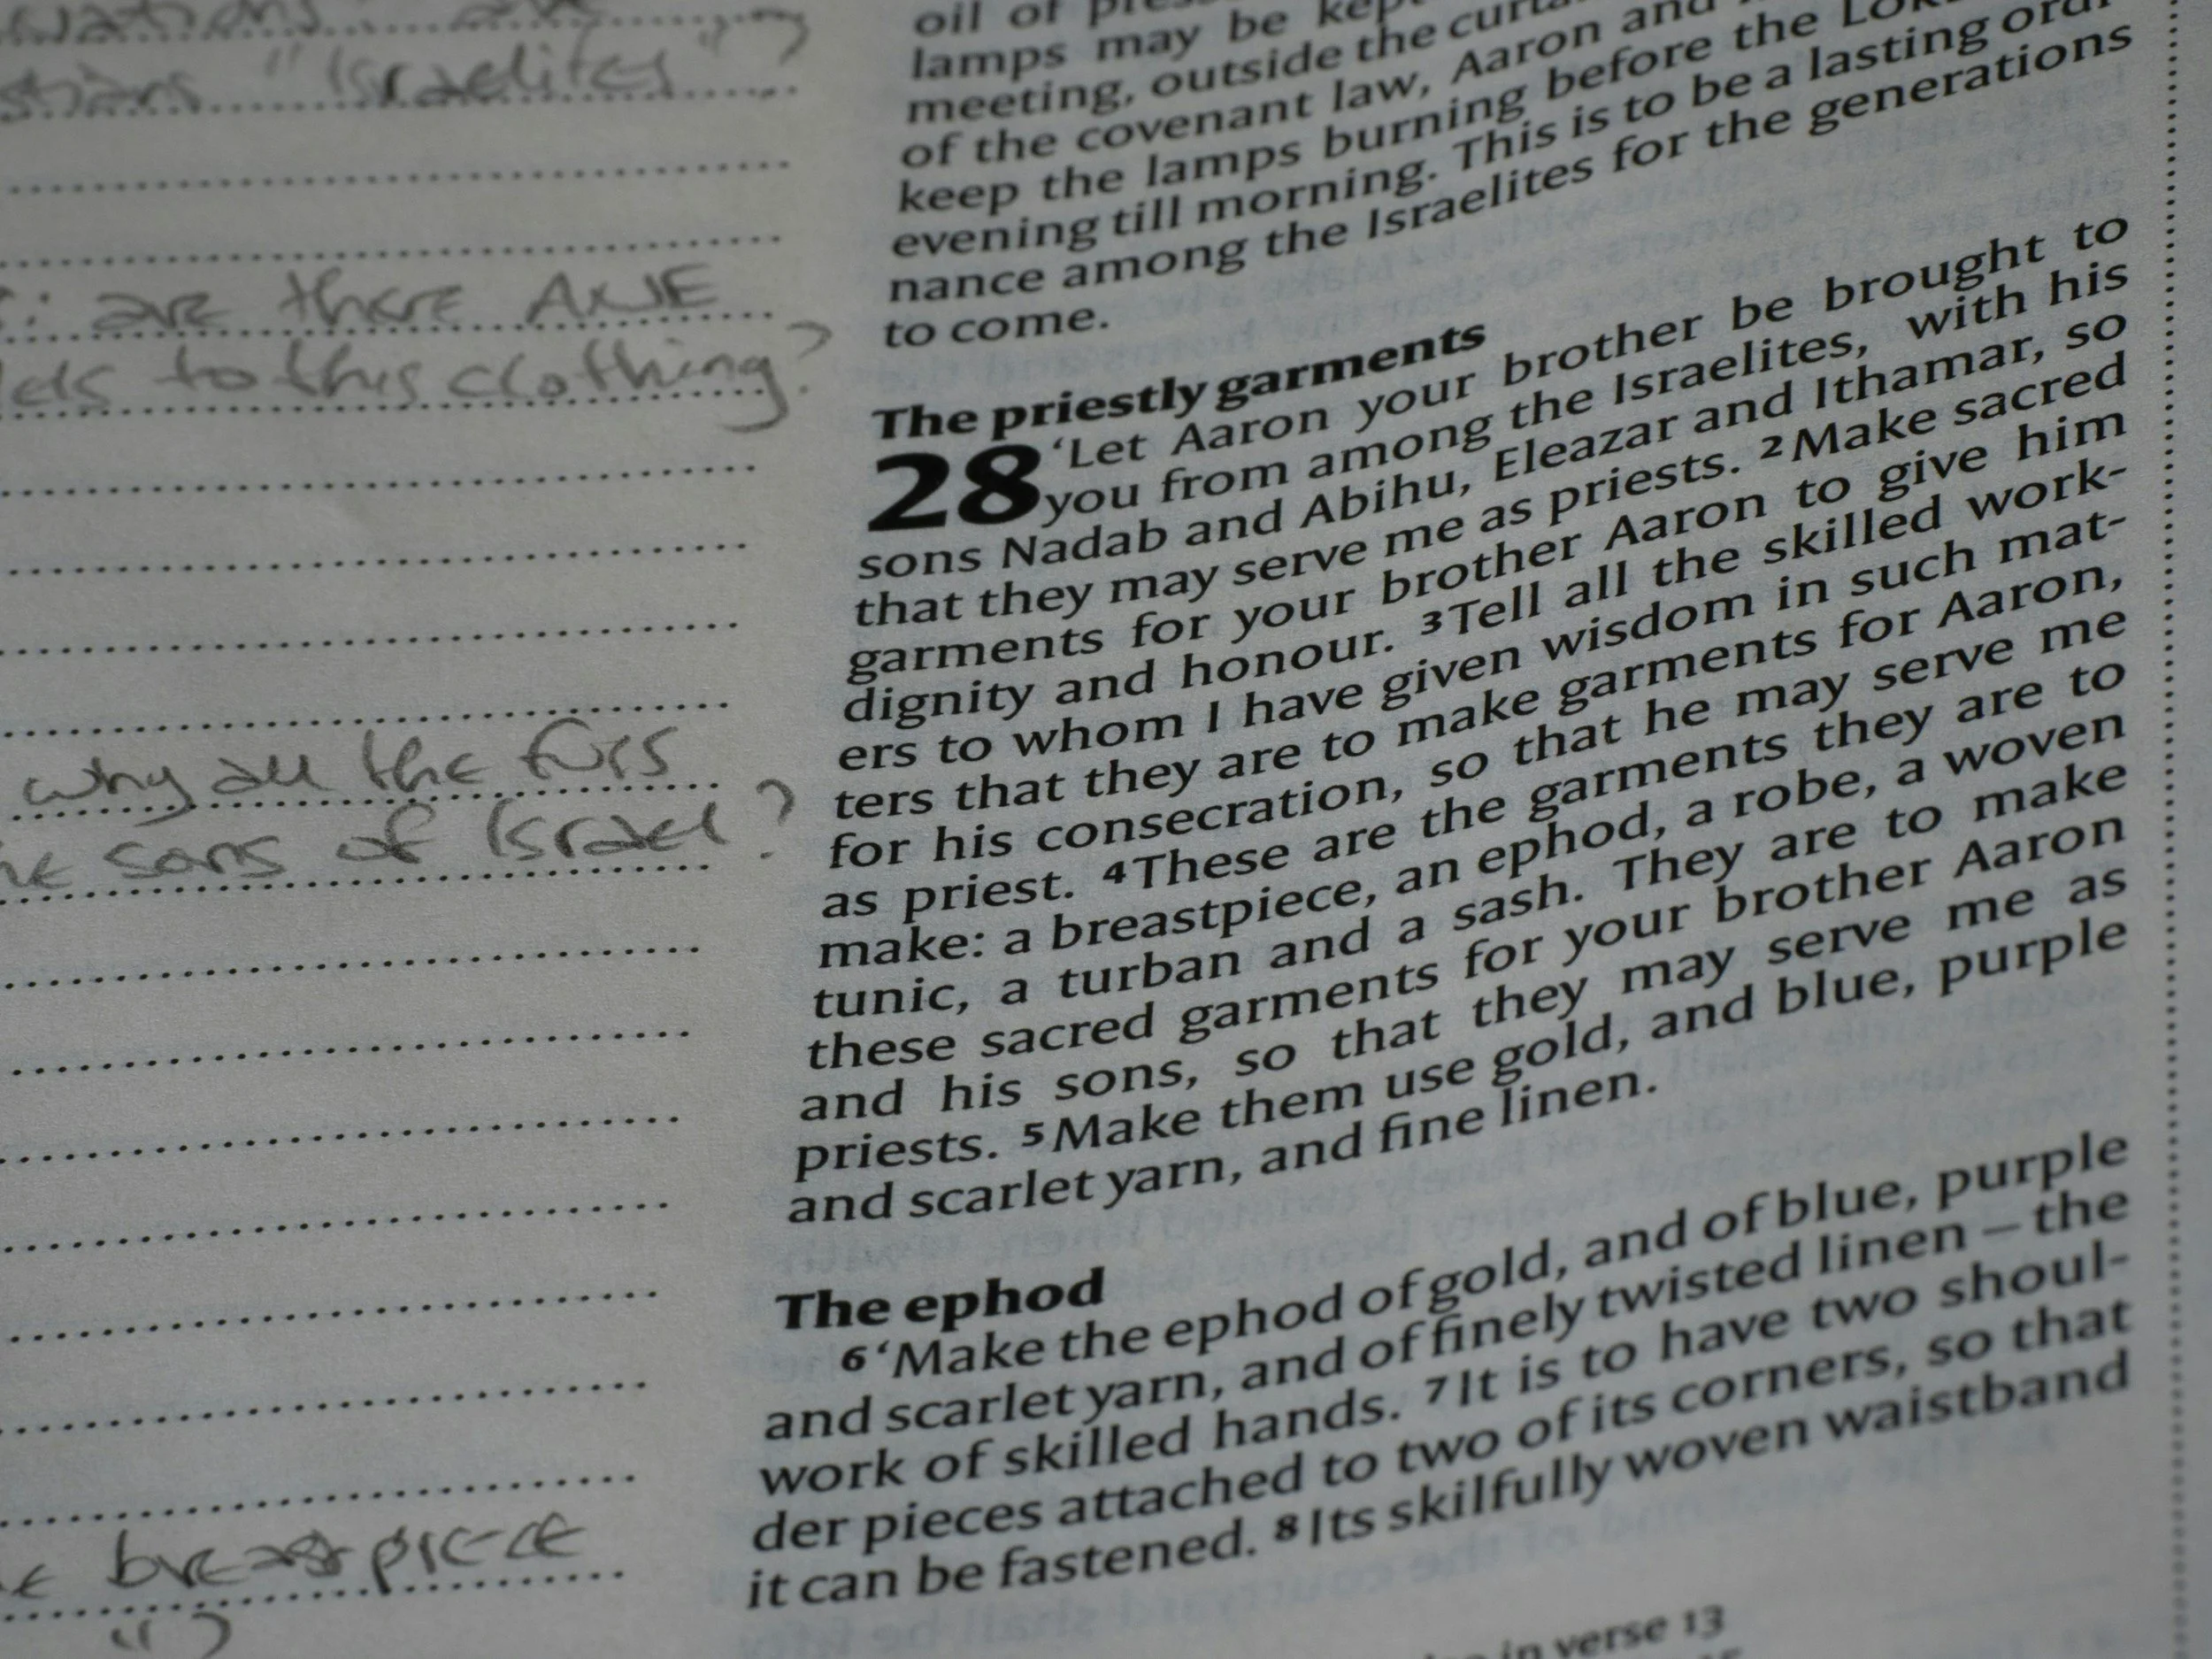 "Israelites"?
: are there ANE
to this clothing?
why all the furs
sons of Israel?
breastpiece
oil of
lamps may be kept
meeting, outside the
of the covenant law, Aaron and
keep the lamps burning before the
evening till morning. This is to be a lasting
nance among the Israelites for the generations
to come.
The priestly garments
28 ‘Let Aaron your brother be brought to
you from among the Israelites, with his
sons Nadab and Abihu, Eleazar and Ithamar, so
that they may serve me as priests. 2 Make sacred
garments for your brother Aaron to give him
dignity and honour. 3 Tell all the skilled work-
ers to whom I have given wisdom in such mat-
ters that they are to make garments for Aaron,
for his consecration, so that he may serve me
as priest. 4 These are the garments they are to
make: a breastpiece, an ephod, a robe, a woven
tunic, a turban and a sash. They are to make
these sacred garments for your brother Aaron
and his sons, so that they may serve me as
priests. 5 Make them use gold, and blue, purple
and scarlet yarn, and fine linen.
The ephod
6 ‘Make the ephod of gold, and of blue, purple
and scarlet yarn, and of finely twisted linen – the
work of skilled hands. 7 It is to have two shoul-
der pieces attached to two of its corners, so that
it can be fastened. 8 Its skilfully woven waistband
in verse 13